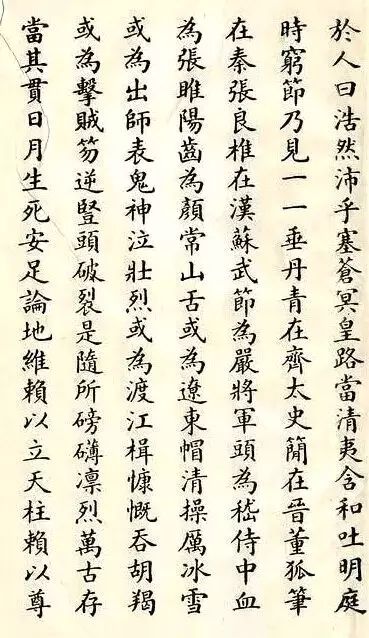 於人曰浩然沛乎塞蒼冥皇路當清夷含和吐明庭
時窮節乃見一一垂丹青在齊太史簡在晉董狐筆
在秦張良椎在漢蘇武節為嚴將軍頭為嵇侍中血
為張睢陽齒為顏常山舌或為遼東帽清操厲冰雪
或為出師表鬼神泣壯烈或為渡江楫慷慨吞胡羯
或為擊賊笏逆豎頭破裂是隨所磅礴凛烈萬古存
當其貫日月生死安足論地維賴以立天柱賴以尊